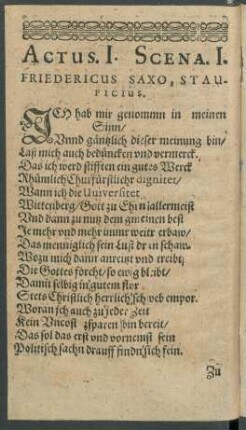 ACTUS. I. SCENA. I.
FRIEDERICUS SAXO, STAU-
PICIUS.
ICH hab mir genommn in meinen
Sinn/
Vnnd gäntzlich dieser meinung bin/
Laß mich auch bedüncken vnd vermerck.
Das ich werd stifften ein gutes Werck
Rhümlich Churfürstlichr dignitet/
Wann ich die Universitet
Wittenberg/Gott zu Ehrn allermeist
Vnd dann zu nutz dem gmeinen best
Je mehr vnd mehr immr weitr erbaw/
Das menniglich sein Lust dran schaw.
Wozu mich dann anreitzt vnd treibt/
Die Gottes förcht/so ewg bleibt/
Damit selbig in gutem flor
Stets Christlich herrlich sch veb empor.
Woran ich auch zu jeder Zeit
Kein Vncost zsparen bin bereit/
Das sol das erst vnd vornemst sein
Politisch sachn drauff findn sich fein.
Zu